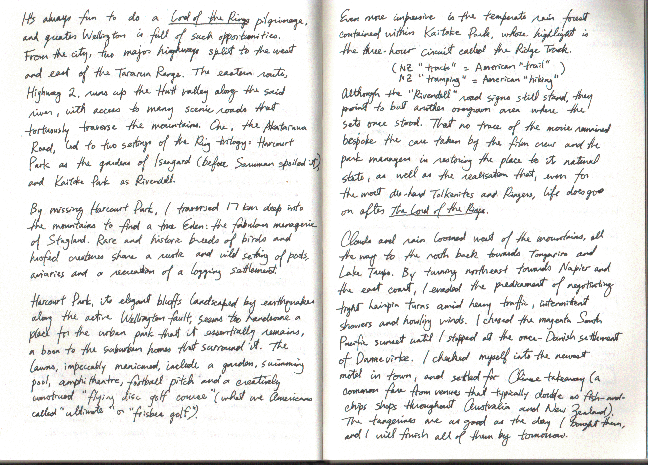 It's always fun to do a Lord of the Rings pilgrimage,
and greater Wellington is full of such opportunities.
From the city, two major highways split to the west
and east of the Tararua Range. The eastern route,
Highway 2, runs up the Hutt valley along the said
river, with access to many scenic roads that
tortuously traverse the mountains. One, the Akatarawa
Road, led to two settings of the Ring trilogy: Harcourt
Park as the gardens of Isengard (before Saruman spoiled it)
and Kaitoke Park as Rivendell.
By missing Harcourt Park, I traversed 17 km deep into
the mountains to find a true Eden: the fabulous menagerie
of Stagland. Rare and historic breeds of birds and
hoofed creatures share a rustic and wild setting of pods,
aviaries and a recreation of a logging settlement.
Harcourt Park, its elegant bluffs landscaped by earthquakes
along the active Wellington fault, seems too handsome a
place for the urban park that it essentially remains,
a boon to the suburban homes that surround it. The
lawns, impeccably manicured, include a garden, swimming
pool, amphitheatre, football pitch and a creatively
construed "flying disc golf course" (what we Americans
called "ultimate" or "frisbee golf")
Even more impressive is the temperate rain forest
contained within Kaitoke Park, whose highlight is
the three-hour circuit called the Ridge Track.
(NZ "track" = American "trail"
NZ "tramping" = American "hiking")
Although the "Rivendell" road signs still stand, they
point to but another overgrown area where the
sets once stood. That no trace of the movie remained
bespoke the care taken by the film crew and the
park managers in restoring the place to its natural
state, as well as the realisation that, even for
the most die-hard Tolkenites and Ringers, life does go
on after The Lord of the Rings.
Clouds and rain loomed west of the mountains, all
the way to the north back towards Tongariro and
Lake Taupo. By turning northeast towards Napier and
the east coast, I evaded the predicament of negotiating
tight hairpin turns amid heavy traffic, intermittent
showers and howling winds. I chased the magenta South
Pacific sunset until I stopped at the once-Danish settlement
of Dannevirke. I checked myself into the newest
motel in town, and settled for Chinese takeaway (a
common fare from venues that typically double as fish-and-
chips shops throughout Australia and New Zealand).
The tangerines are as good as the day I bought them,
and I will finish all of them by tomorrow.